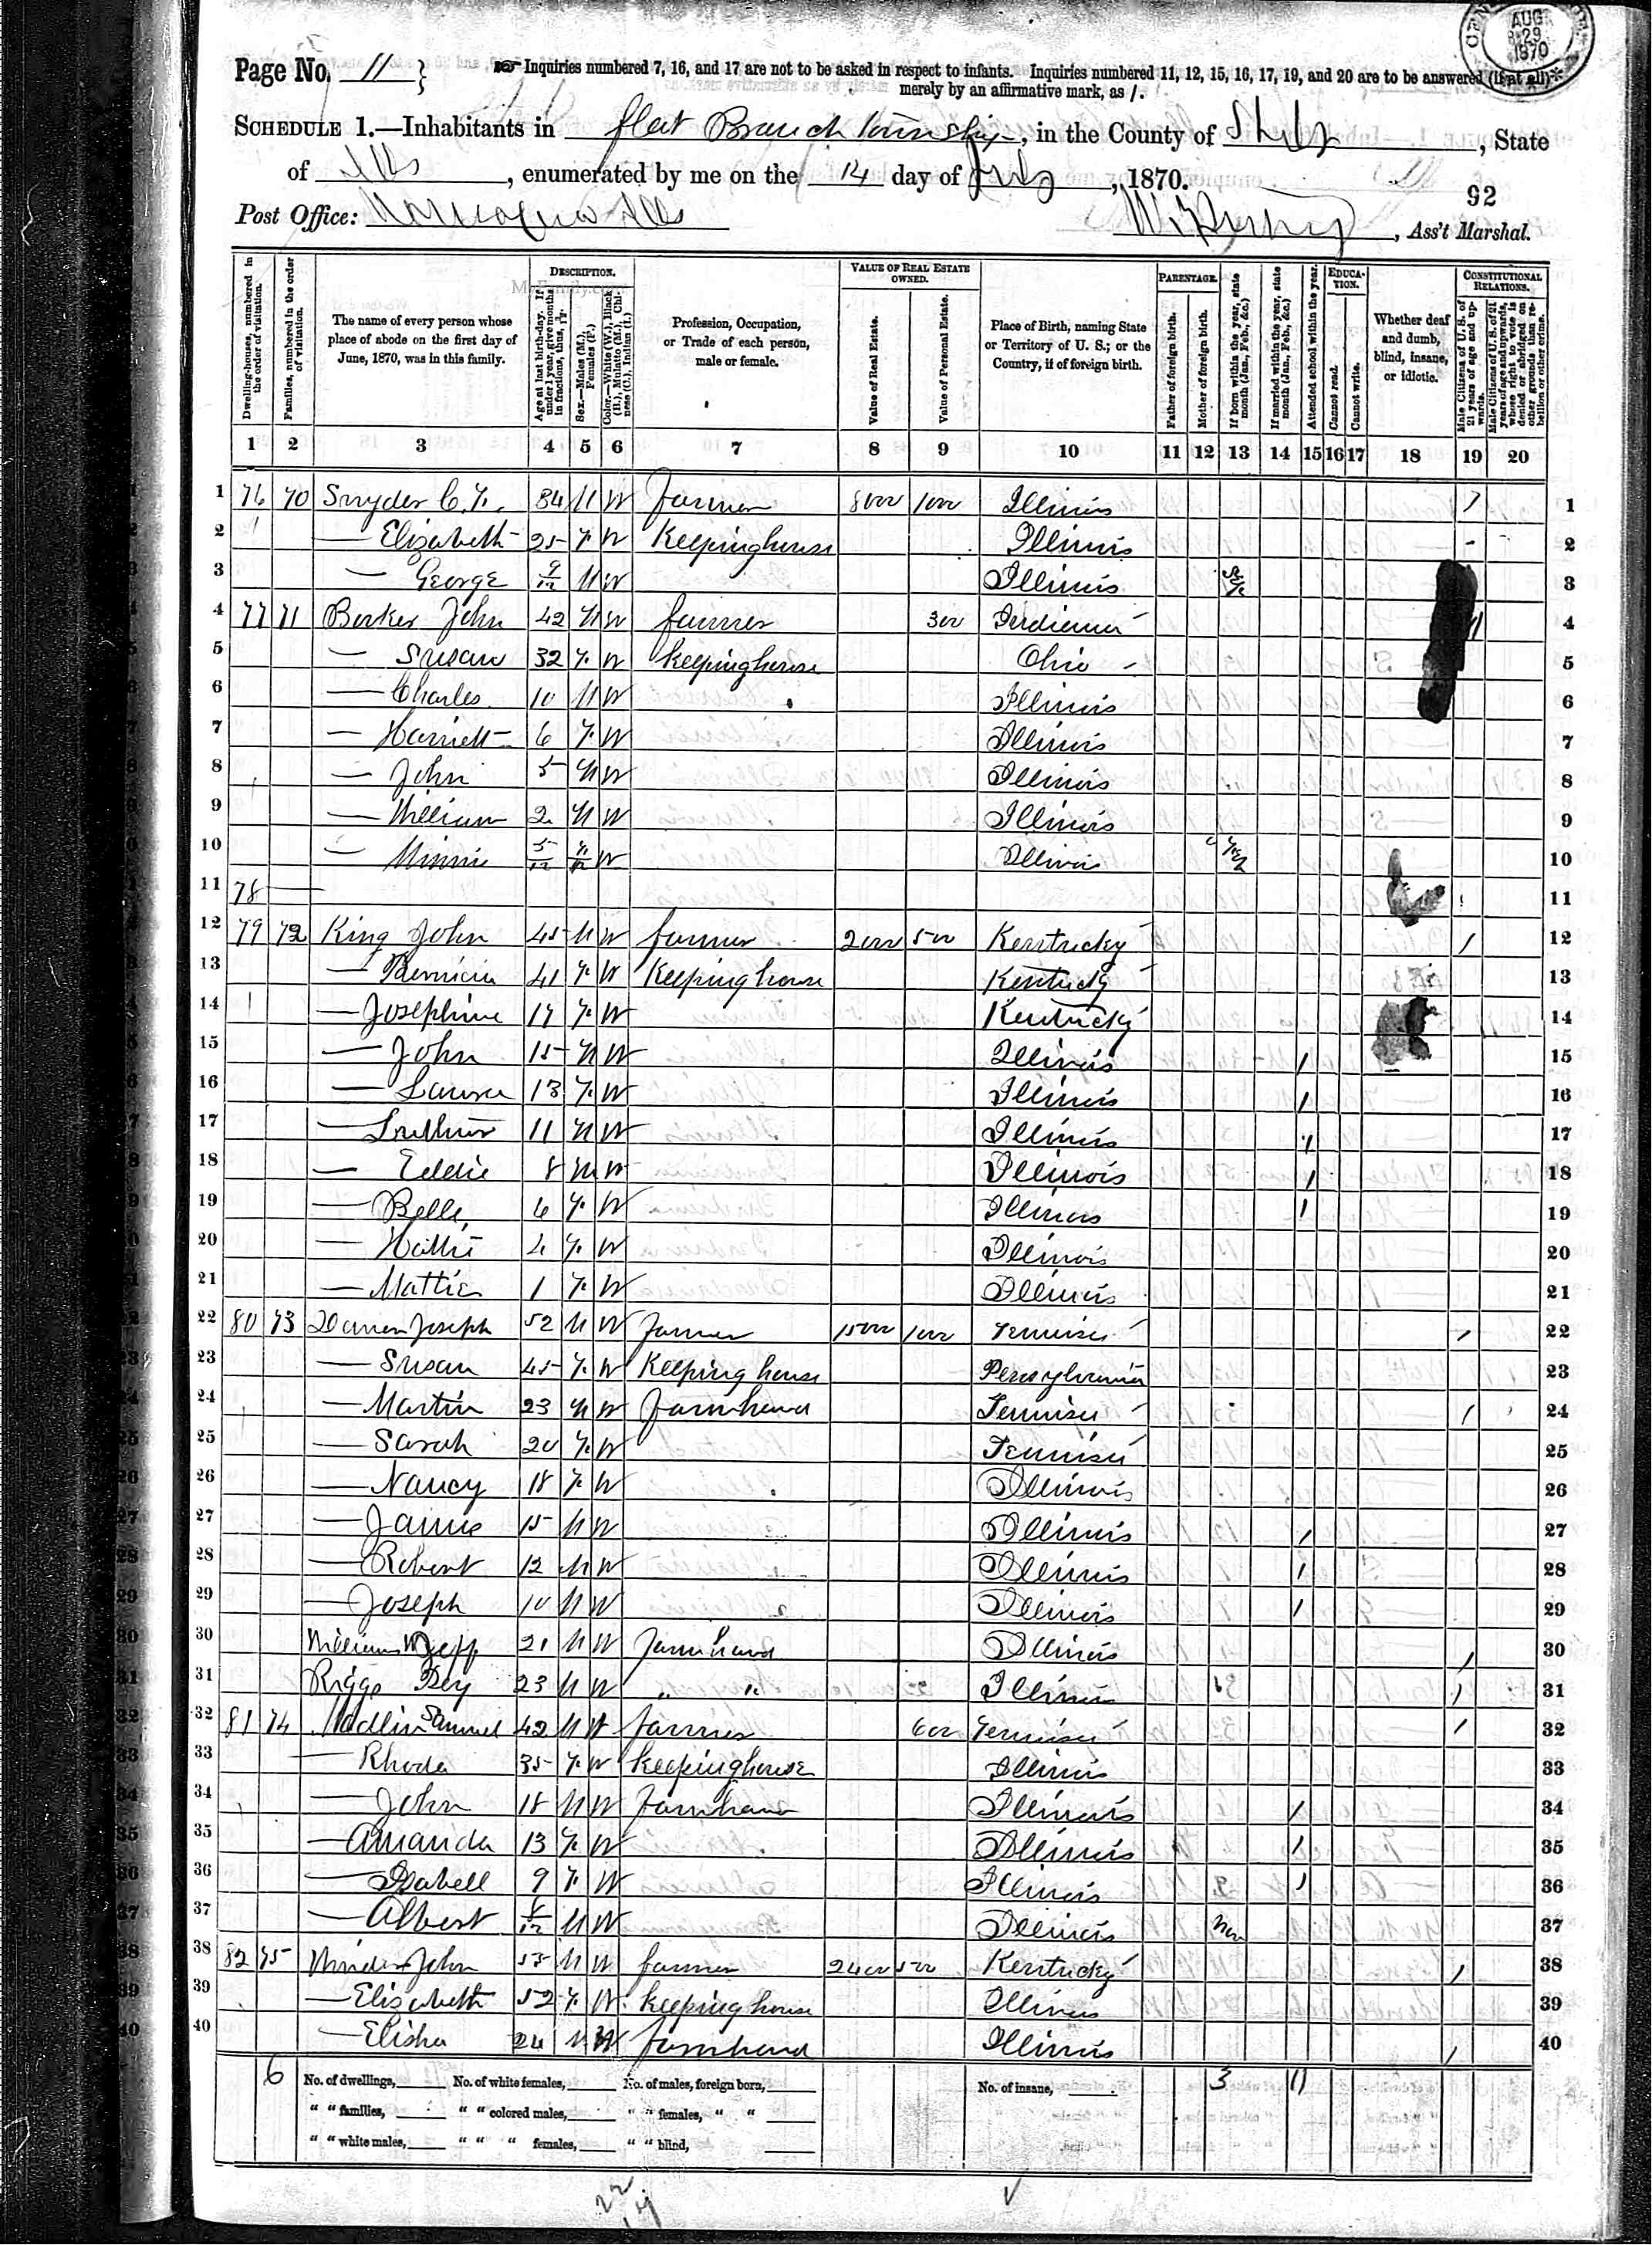 AUG
29
1870
Page No. 11 } Inquiries numbered 7, 16, and 17 are not to be asked in respect to infants. Inquiries numbered 11, 12, 15, 16, 17, 19, and 20 are to be answered (if at all)
merely by an affirmative mark, as /.
SCHEDULE 1.—Inhabitants in Flat Branch Township, in the County of Shelby, State
of Ills, enumerated by me on the 14 day of July, 1870.
92
Post Office: Ills , Ass't Marshal.
MyFamily.com
DESCRIPTION. VALUE OF REAL ESTATE OWNED. PARENTAGE. EDUCATION. CONSTITUTIONAL RELATIONS.
Dwelling-houses, numbered in the order of visitation.
Families, numbered in the order of visitation.
The name of every person whose place of abode on the first day of June, 1870, was in this family.
Age at last birth-day. If under 1 year, give months in fractions, thus, 3/12.
Sex.—Males (M.), Females (F.)
Color.—White (W.), Black (B.), Mulatto (M.), Chinese (C.), Indian (I.)
Profession, Occupation, or Trade of each person, male or female.
Value of Real Estate.
Value of Personal Estate.
Place of Birth, naming State or Territory of U. S.; or the Country, if of foreign birth.
Father of foreign birth.
Mother of foreign birth.
If born within the year, state month (Jan., Feb., &c.)
If married within the year, state month (Jan., Feb., &c.)
Attended school within the year.
Cannot read.
Cannot write.
Whether deaf and dumb, blind, insane, or idiotic.
Male Citizens of U. S. of 21 years of age and upwards.
Male Citizens of U. S. of 21 years of age and upwards, whose right to vote is denied or abridged on other grounds than rebellion or other crime.
1 2 3 4 5 6 7 8 9 10 11 12 13 14 15 16 17 18 19 20
1 76 70 Snyder C. F. 34 M W Farmer 8000 1000 Illinois / 1
2 — Elizabeth 25 F W Keeping house Illinois 2
3 — George 9/12 M W Illinois 3
4 77 71 Barker John 42 M W farmer 300 Indiana / 4
5 — Susan 32 F W Keeping house Ohio 5
6 — Charles 10 M W Illinois 6
7 — Harriett 6 F W Illinois 7
8 — John 5 M W Illinois 8
9 — William 2 M W Illinois 9
10 — Minnie 5/12 W Illinois 10
11 78 — 11
12 79 72 King John 45 M W farmer 2000 500 Kentucky / 12
13 — 41 F W Keeping house Kentucky 13
14 — Josephine 17 F W Kentucky 14
15 — John 15 M W Illinois / 15
16 — Laura 13 F W Illinois / 16
17 — Luther 11 M W Illinois / 17
18 — Eddie 8 M W Illinois / 18
19 — Belle 6 F W Illinois / 19
20 — Hattie 4 F W Illinois 20
21 — Mattie 1 F W Illinois 21
22 80 73 Joseph 52 M W Farmer 15000 1000 Tennisee / 22
23 — Susan 45 F W Keeping house Pensylvania 23
24 — Martin 23 M W Farmhand Tennisee / 24
25 — Sarah 20 F W Tennisee 25
26 — Nancy 18 F W Illinois 26
27 — Jaims 15 M W Illinois / 27
28 — Robert 12 M W Illinois / 28
29 — Joseph 10 M W Illinois / 29
30 Williams Jeff 21 M W Farmhand Illinois / 30
31 Riggs 23 M W " " Illinois / 31
32 81 74 Modlin Samuel 42 M W farmer 600 Tennisee / 32
33 — Rhoda 35 F W Keeping house Illinois 33
34 — John 18 M W Farmhand Illinois / 34
35 — Amanda 13 F W Illinois / 35
36 — Isabell 9 F W Illinois / 36
37 — Albert M W Illinois Nov 37
38 82 75 John 55 M W farmer 2400 500 Kentucky / 38
39 — Elizabeth 52 F W keeping house Illinois 39
40 — Elisha 24 M W Farmhand Illinois / 40
6 No. of dwellings, No. of white females, No. of males, foreign born, No. of insane, 3 11
" " families, " " colored males, " " females, " "
" " white males, " " " females, " " blind,